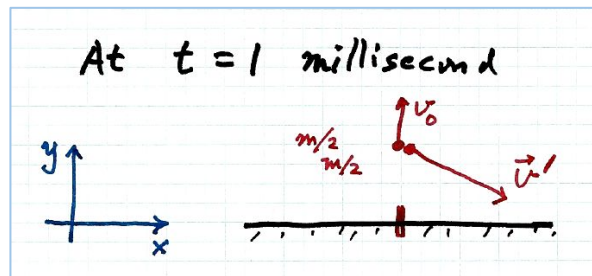 At t = 1 millisecond
v₀
m/2
m/2
v⃗′
y
x